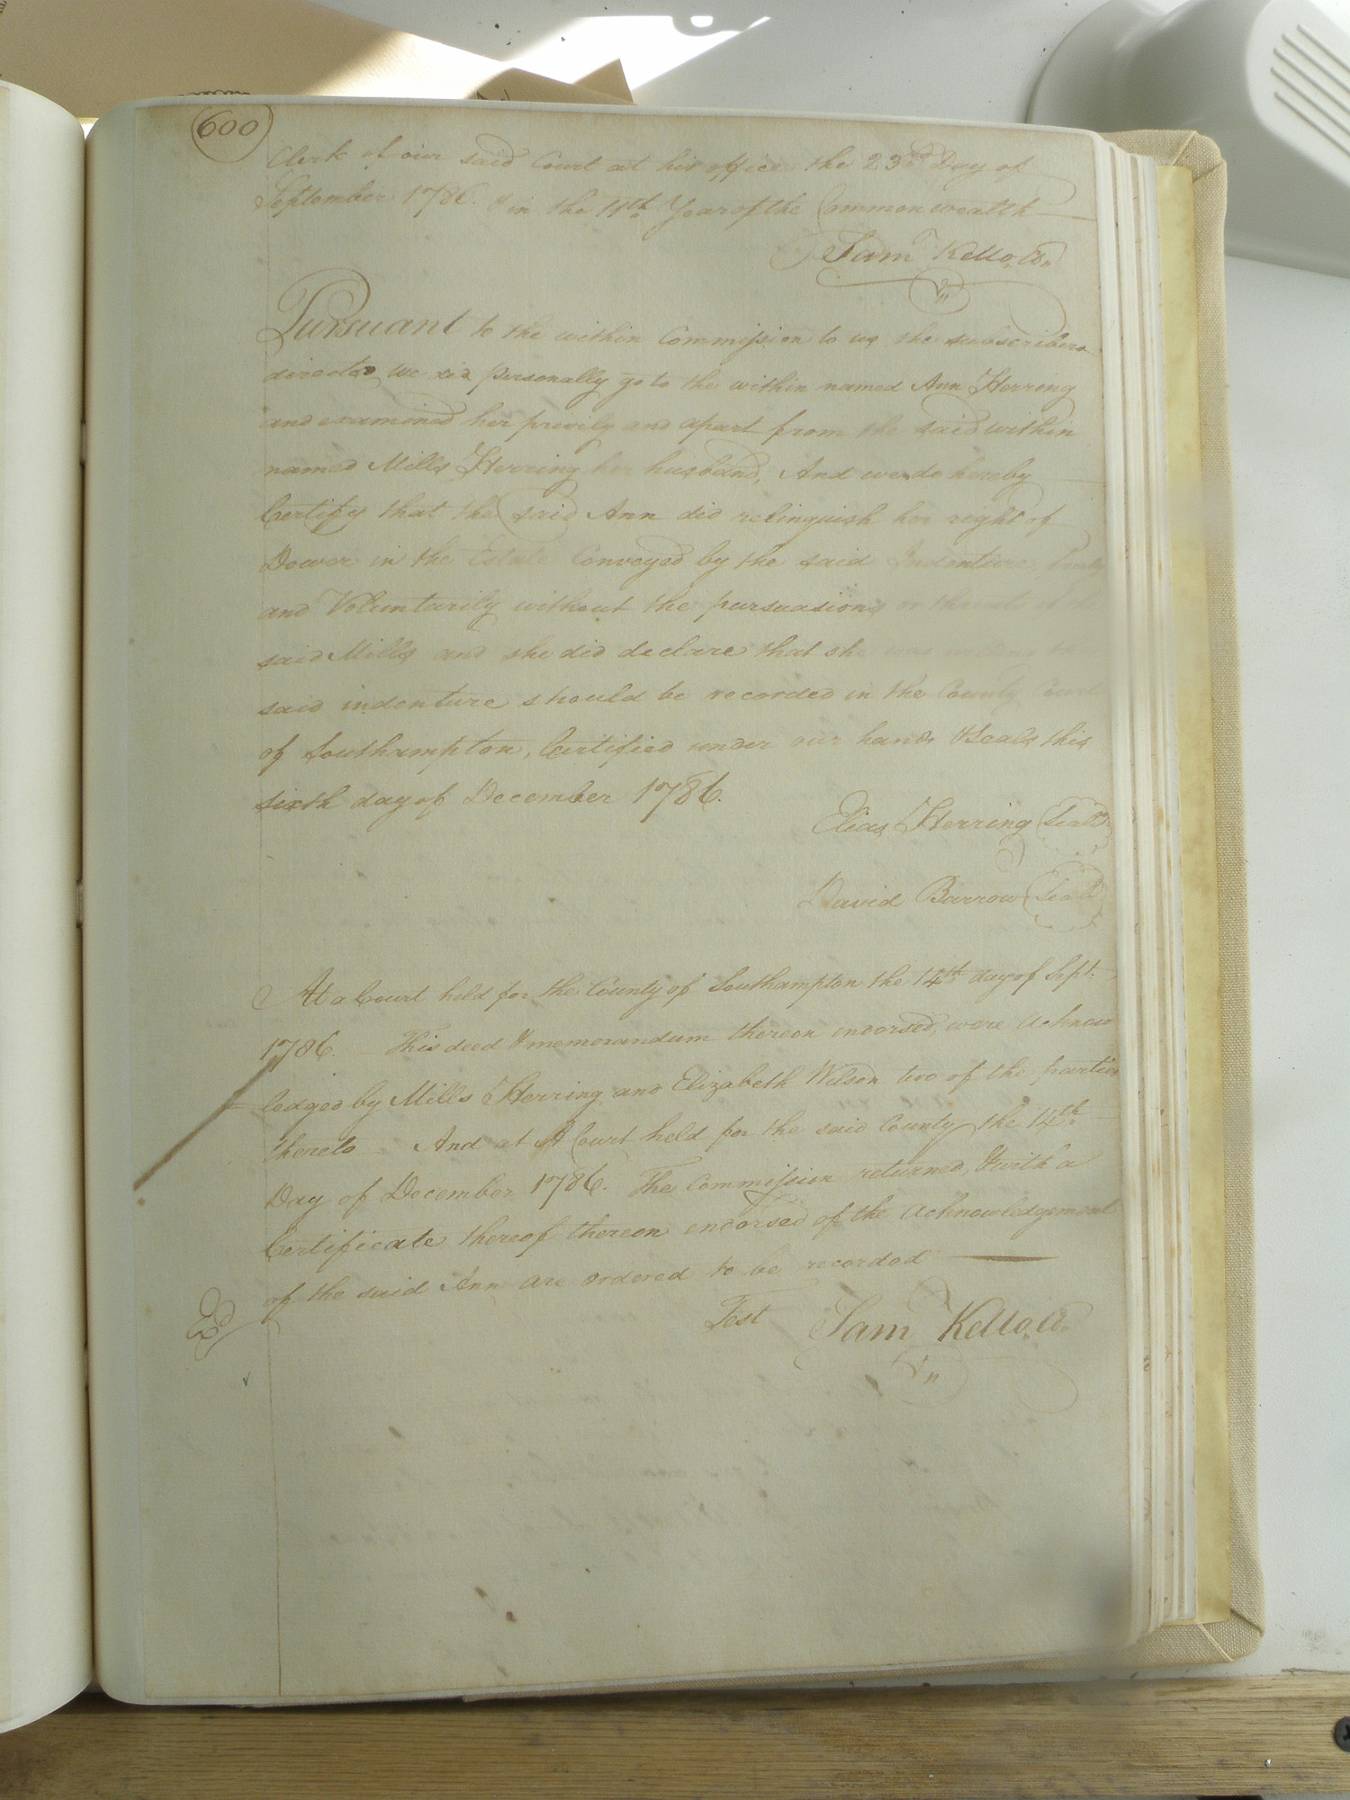 600
Clerk of our said Court at his office the 23rd Day of
September 1786. & in the 11th Year of the Commonwealth
Sam Kello, Cl.
Pursuant to the within Commission to us the subscribers
directed, We did personally go to the within named Ann Herring
and examined her privily and apart from the said within
named Mills Herring her husband, And we do hereby
Certify that the said Ann did relinquish her right of
Dower in the Estate Conveyed by the said Indenture
and Voluntarily without the pursuasions or threats
said Mills and she did declare that she was willing the
said indenture should be recorded in the County Court
of Southampton, Certified under our hands & Seals this
sixth day of December 1786.
Elias Herring Seal
David Barrow Seal
At a Court held for the County of Southampton the 14th day of Sept.
1786. This deed & memorandum thereon endorsed, were acknow
ledged by Mills Herring and Elizabeth Wilson two of the parties
thereto And at A Court held for the said County the 14th
Day of December 1786. The Commission returned, & with a
Certificate thereof thereon endorsed of the acknowledgement
of the said Ann are ordered to be recorded
Test Sam Kello, Cl.